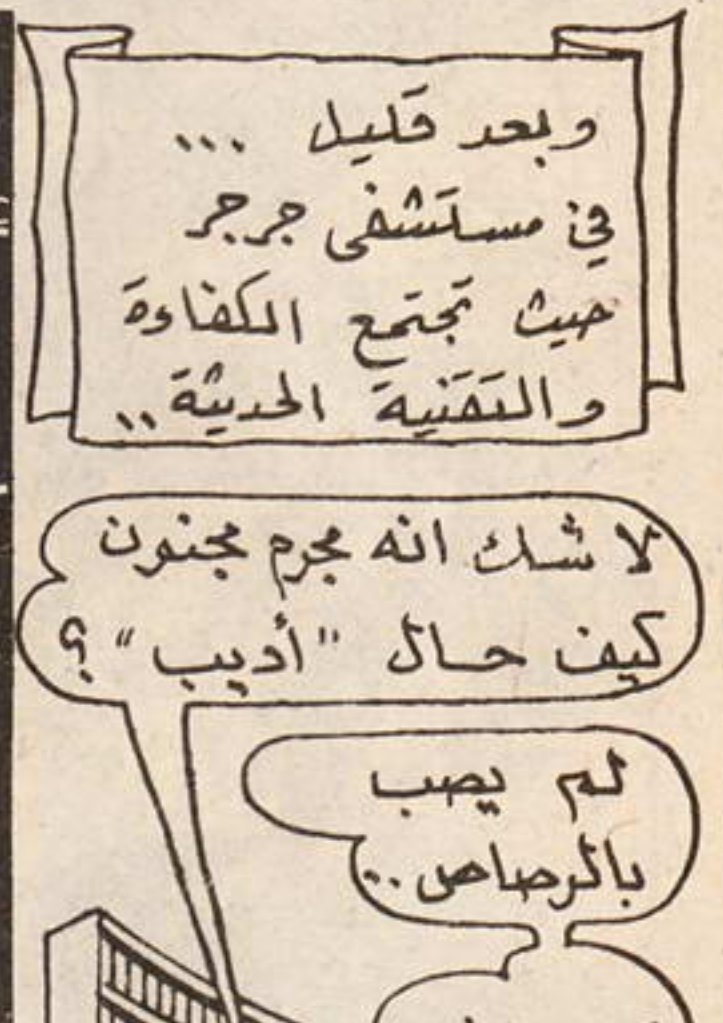 وبعد قَليل ...
في مستَشفى جرجر
حيث تجتَمع الكفاءةَ
والتَقنيةَ الحديثةَ ..
لا شك انه مجرم مجنون
كيف حال "أديب" ؟
لم يصب
بالرصاص ..